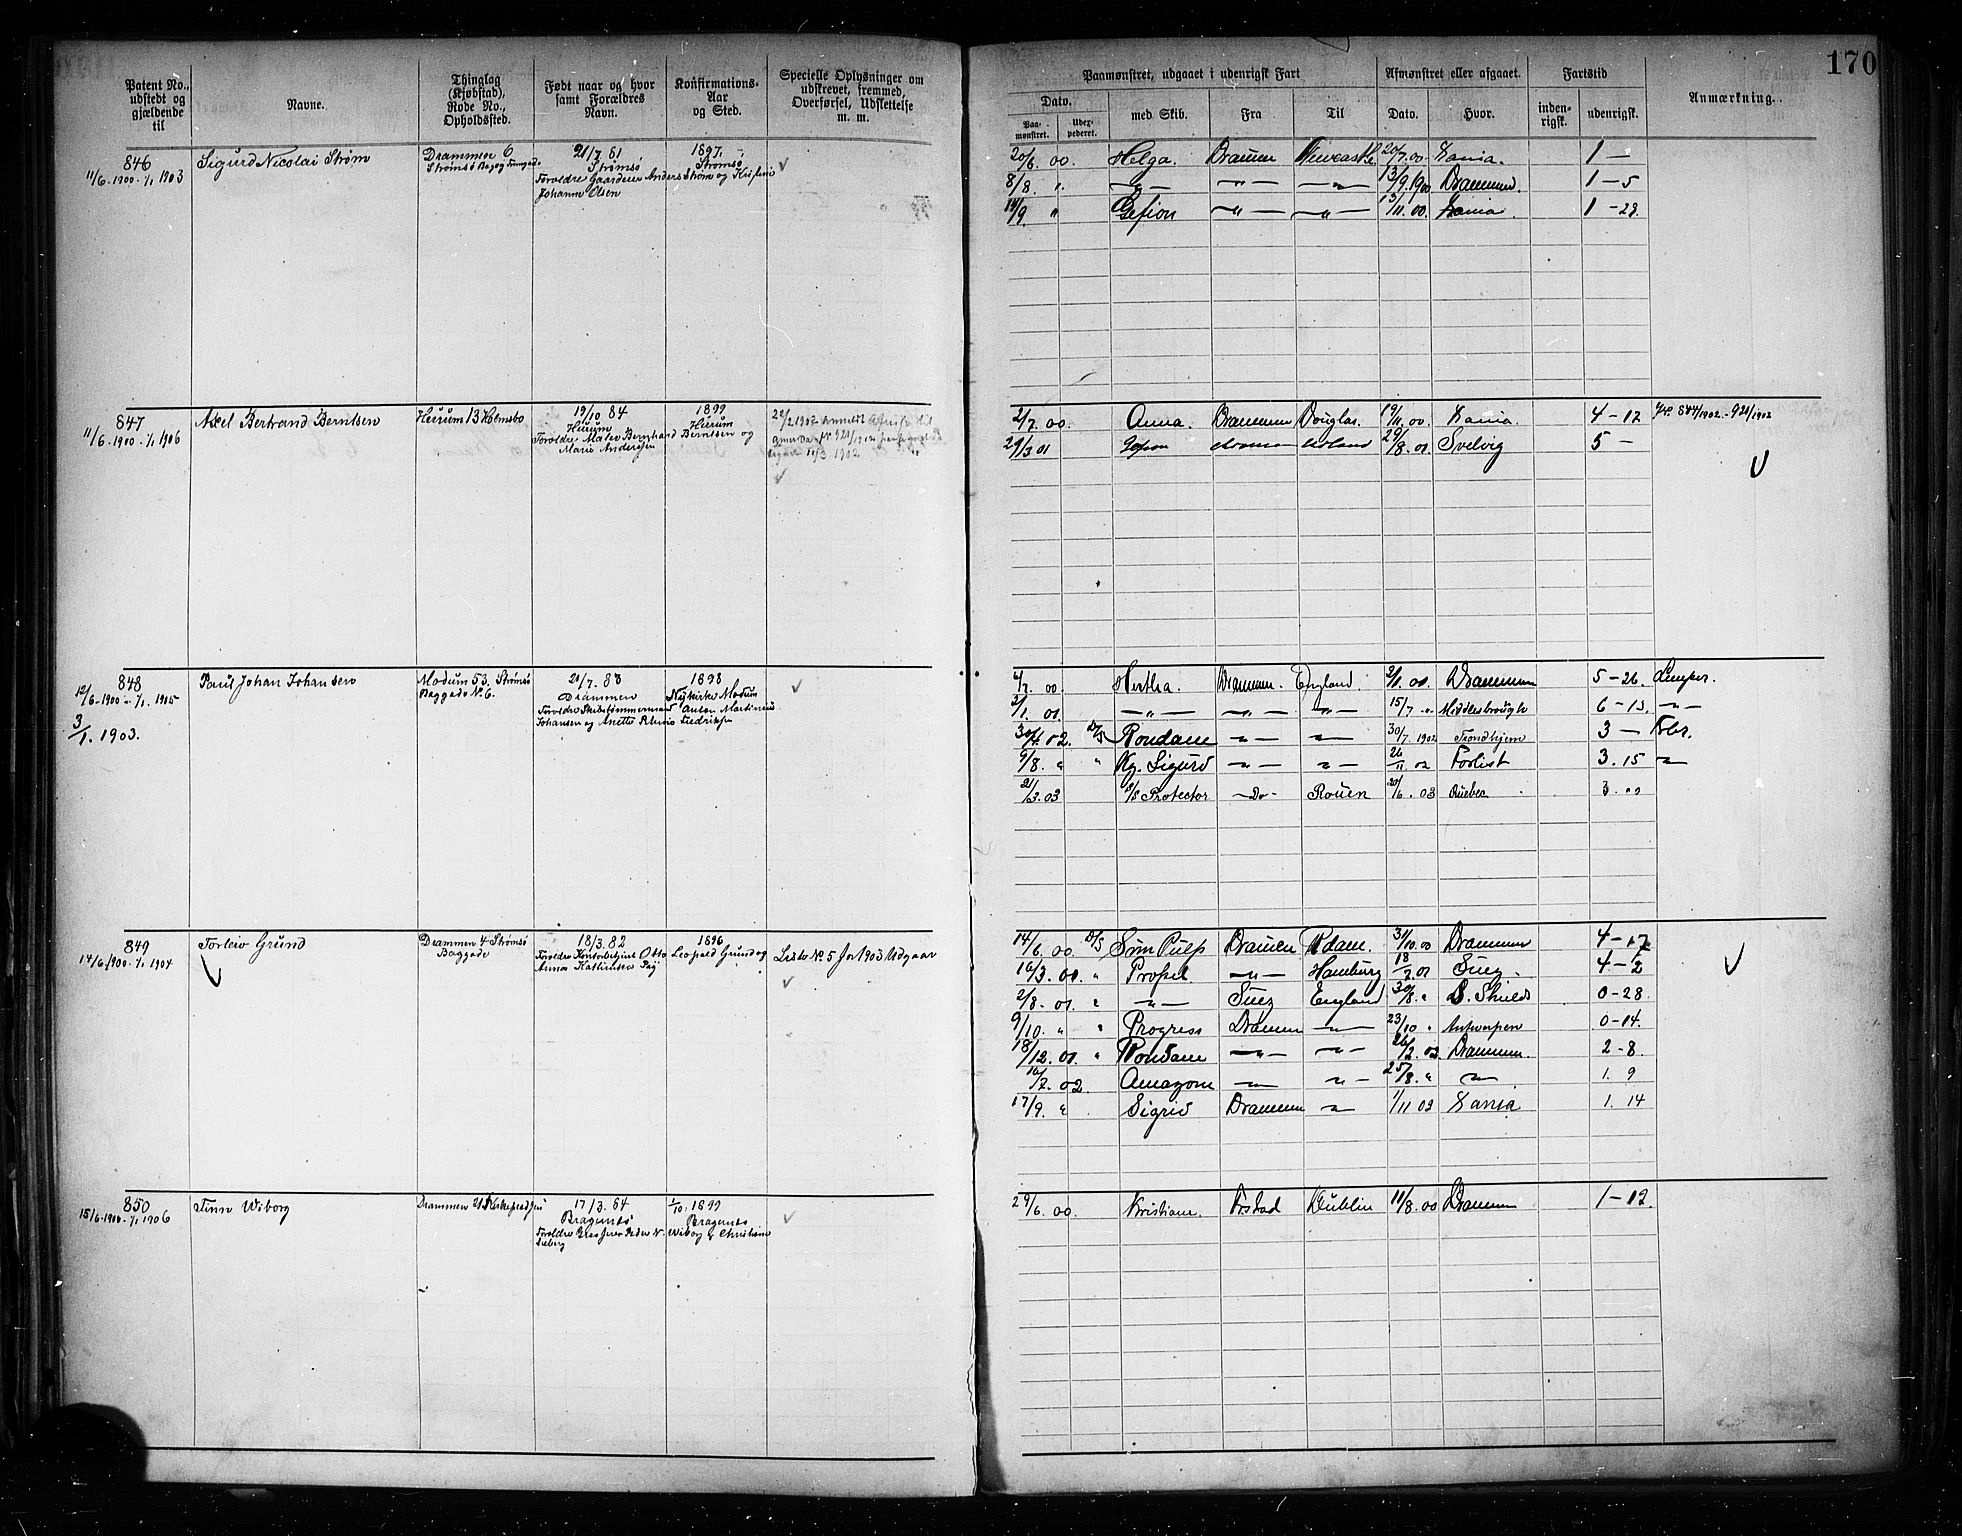 170
Patent No., udstedt og gjældende til
Navne.
Thinglag (Kjøbstad), Rode No., Opholdssted.
Født naar og hvor samt Forældres Navn.
Konfirmations-Aar og Sted.
Specielle Oplysninger om udskrevet, fremmed, Overførsel, Udslettelse m. m.
Paamønstret, udgaaet i udenrigsk Fart
Afmønstret eller afgaaet.
Fartstid
Anmærkning.
Dato.
Paamønstret.
Uderpederet.
med Skib.
Fra
Til
Dato.
Hvor.
indenrigsk.
udenrigsk.
846
11/6-1900-1/1 1903
Sigurd Nicolai Strøm
Drammen 6
Strømsø
21/7 81
Strømsø
Forældre Gaardeier Anders Strøm og Kristine
Johanne Olsen
1897.
Strømsø
20/6. 00. Helga. Drammen Newcastle 20/7.00 Xania. 1 —
8/8. " —"— —"— —"— 13/9.1900 Drammen. 1 - 5
14/9 " Gefion —"— —"— 13/11.00. Xania. 1 - 29.
847
11/6-1900-1/1 1906
Axel Bertrand Berntsen
Hurum 13 Holmsbo
19/10 84
Hurum
Forældre Mates Bernhard Berntsen og
Marie Andersen
1899
Hurum
2/7. 00. Anna. Drammen Douglas. 19/11.00. Xania. 4 - 12 844/1902 - 921/1902
29/3 01 Gefion Drammen 29/8. 01 Svelvig 5 —
848
12/6-1900-1/1 1905
3/1. 1903.
Paul Johan Johansen
Modum 53. Strømsø
Baggade No 6.
20/7. 83
Drammen
Forældre Skibstømmermand Anton Martinius
Johansen og Anette
1898
Nykirke Modum
6/7. 00. Hertha. Drammen. England. 2/1. 01. Drammen 5 - 26. Lemper.
2/1. 01. —"— —"— —"— 15/7 " Middlesbrough 6 - 13. —"—
30/4 02. D/S Rondane —"— —"— 30/7. 1902 Trondhjem 3 —
9/8. " " Kg. Sigurd —"— —"— 26/11 02 Forlist 3. 15 —"—
21/3. 03 S/S Protector —Do— Rouen 20/6. 03 Quebec 3. "
849
14/6.1900.-1/1 1904
Torleiv Grund
Drammen 4 Strømsø
Baggade
18/3. 82
Forældre Kontorbetjent Otto Leopold Grund og
Anna Kathinka
1896
Liste No. 5 for 1903 Udgaar
14/6. 00. D/S Drammen 31/10.00 Drammen 4 - 17
16/3. 00. " Propel —"— Hamburg 18/7. 01 Suez. 4 - 2
2/8. 01. " —"— Suez England 30/8. " S. Shields 0 - 28.
9/10. " " Progress Drammen —"— 23/10 " Antwerpen 0 - 14.
18/12. 01. " Rondane —"— —"— 26/2. 02. Drammen. 2 - 8.
16/7. 02 Amazone —"— —"— 25/8. " —"— 1. 9
17/9. " Sigrid Drammen —"— 1/11 02 Xania 1. 14
850
15/6-1900-1/1 1906
Finn Wiborg
Drammen
17/3. 84
Bragernes
Wiborg & Christiane
1/10. 1899
Bragernes
29/6. 00. Kristiane. Dublin 11/8. 00 Drammen 1 - 12.